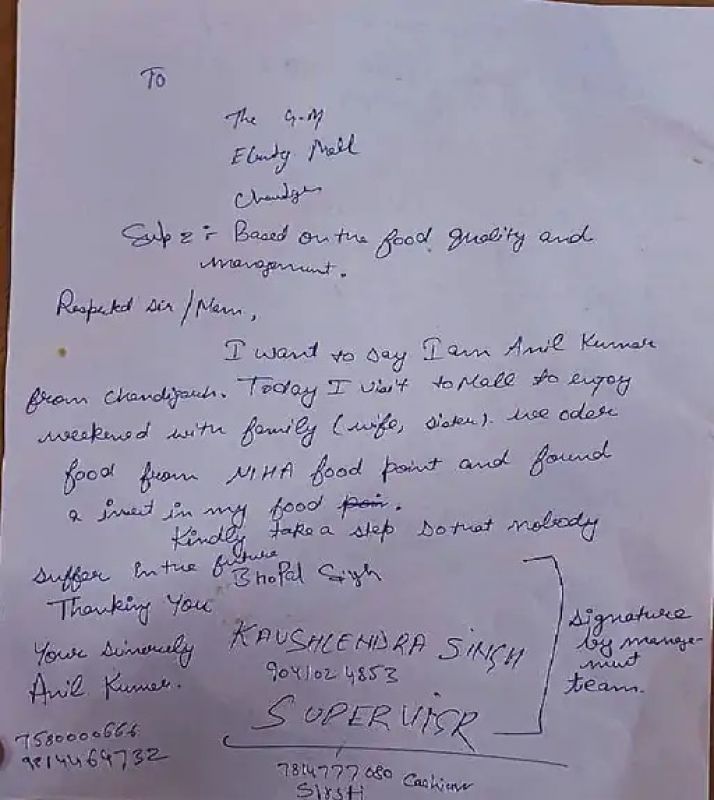 To
The G.M
Elante Mall
Subz :- Based on the food quality and
management.
Respected sir / Mam,
I want to say I am Anil Kumar
from Chandigarh. Today I visit to Mall to enjoy
weekened with family (wife, sister). we oder
food from NIHA food point and found
a insect in my food
Kindly take a step so that nobody
suffer in the future
BhoPal Sigh
Thanking You
Your sincerely
KAUSHLENDRA SINGH
Anil Kumar.
9041024853
SUPERVISR
signature
by manage-
ment
team.
7580000666
9814464732
7814777080 Cashier